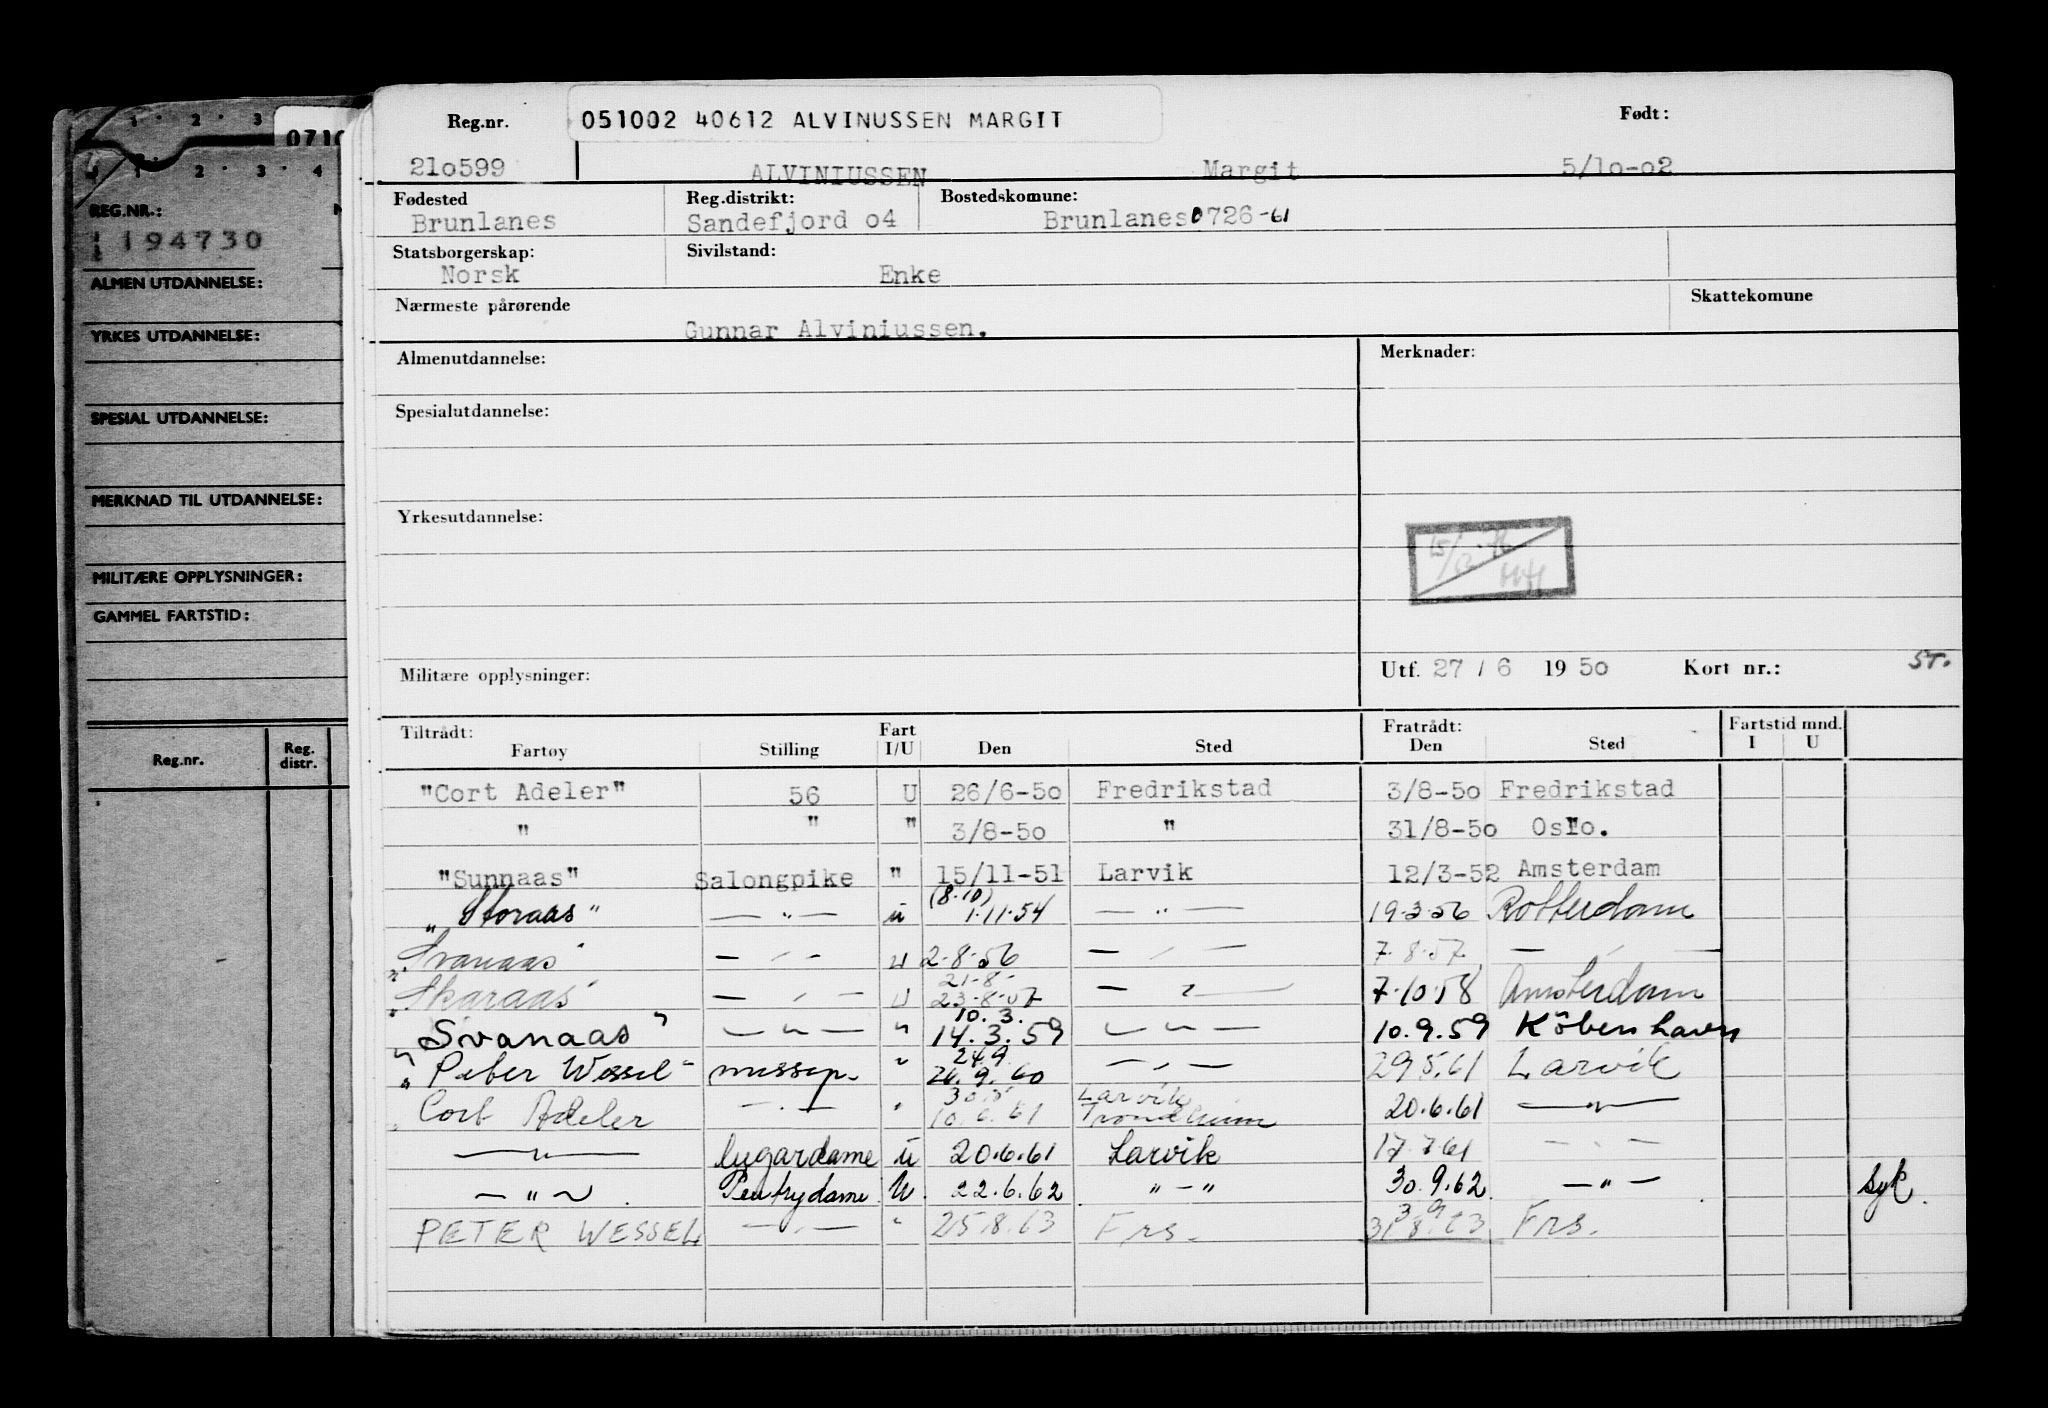 1 · 2 · 3
0710
1 · 2 · 3 · 4
REG.NR.:
194730
ALMEN UTDANNELSE:
YRKES UTDANNELSE:
SPESIAL UTDANNELSE:
MERKNAD TIL UTDANNELSE:
MILITÆRE OPPLYSNINGER:
GAMMEL FARTSTID:
Reg.nr. Reg. distr.
Reg.nr. 051002 40612 ALVINUSSEN MARGIT Født:
21o599 ALVINIUSSEN Margit 5/1o-o2
Fødested Reg.distrikt: Bostedskomune:
Brunlanes Sandefjord o4 Brunlanes 0726-61
Statsborgerskap: Sivilstand:
Norsk Enke
Nærmeste pårørende Skattekomune
Gunnar Alviniussen.
Almenutdannelse: Merknader:
Spesialutdannelse:
Yrkesutdannelse:
Militære opplysninger: Utf. 27 / 6 19 5o Kort nr.: ST.
Tiltrådt: Fart Fratrådt: Fartstid mnd.
Fartøy Stilling I/U Den Sted Den Sted I U
"Cort Adeler" 56 U 26/6-5o Fredrikstad 3/8-5o Fredrikstad
" " " 3/8-5o " 31/8-5o Oslo.
"Sunnaas" Salongpike " 15/11-51 Larvik 12/3-52 Amsterdam
(8.10)
"Storaas" — " — u 1.11.54 — " — 19.3.56 Rotterdam
"Svanaas" — " — u 2.8.56 — " — 7.8.57 — " —
21.8
"Skaraas" — " — u 23.8.57 — " — 7.10.58 Amsterdam
10.3.
"Svanaas" — " — " 14.3.59 — " — 10.9.59 København
24.9
"Peter Wessel" messep. " 26.9.60 — " — 29.5.61 Larvik
30.5 Larvik
"Cort Adeler — " — " 10.6.61 Trondheim 20.6.61 — " —
— " — lugardame u 20.6.61 Larvik 17.7.61 — " —
— " — Pentrydame U. 22.6.62 " — " 30.9.62 — " — Syk.
3 9
PETER WESSEL — " — " 25.8.63 Frs. 31.8.63 Frs.